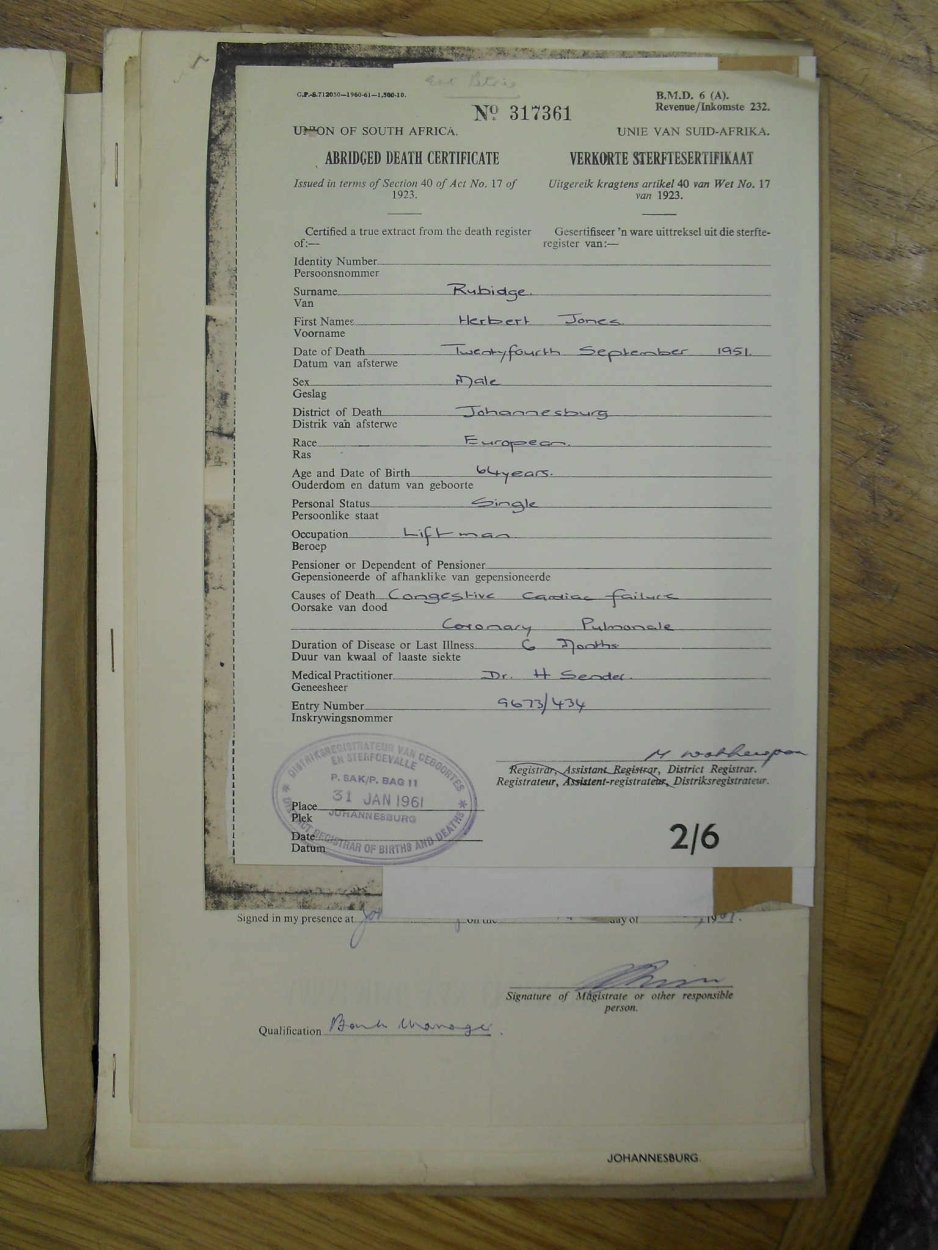 G.P.-S.712030—1960-61—1,500-10.
B.M.D. 6 (A).
Revenue/Inkomste 232.
Nº 317361
UNION OF SOUTH AFRICA.
UNIE VAN SUID-AFRIKA.
ABRIDGED DEATH CERTIFICATE
VERKORTE STERFTESERTIFIKAAT
Issued in terms of Section 40 of Act No. 17 of
1923.
Uitgereik kragtens artikel 40 van Wet No. 17
van 1923.
Certified a true extract from the death register
of:—
Gesertifiseer 'n ware uittreksel uit die sterfte-
register van:—
Identity Number
Persoonsnommer
Surname Rubidge.
Van
First Names Herbert Jones
Voorname
Date of Death Twentyfourth September 1951.
Datum van afsterwe
Sex Male
Geslag
District of Death Johannesburg
Distrik van afsterwe
Race European.
Ras
Age and Date of Birth 64 years.
Ouderdom en datum van geboorte
Personal Status Single
Persoonlike staat
Occupation Liftman
Beroep
Pensioner or Dependent of Pensioner
Gepensioneerde of afhanklike van gepensioneerde
Causes of Death Congestive Cardiac failure
Oorsake van dood
Coronary Pulmonale
Duration of Disease or Last Illness 6 Months
Duur van kwaal of laaste siekte
Medical Practitioner Dr. H Sender.
Geneesheer
Entry Number 9673/434
Inskrywingsnommer
Registrar, Assistant Registrar, District Registrar.
Registrateur, Assistent-registrateur, Distriksregistrateur.
DISTRIKSREGISTRATEUR VAN GEBOORTES
EN STERFGEVALLE
P. SAK/P. BAG 11
31 JAN 1961
JOHANNESBURG
DISTRICT REGISTRAR OF BIRTHS AND DEATHS
Place
Plek
Date
Datum
2/6
Signed in my presence at on the day of
Signature of Magistrate or other responsible
person.
Qualification Bank Manager.
JOHANNESBURG.